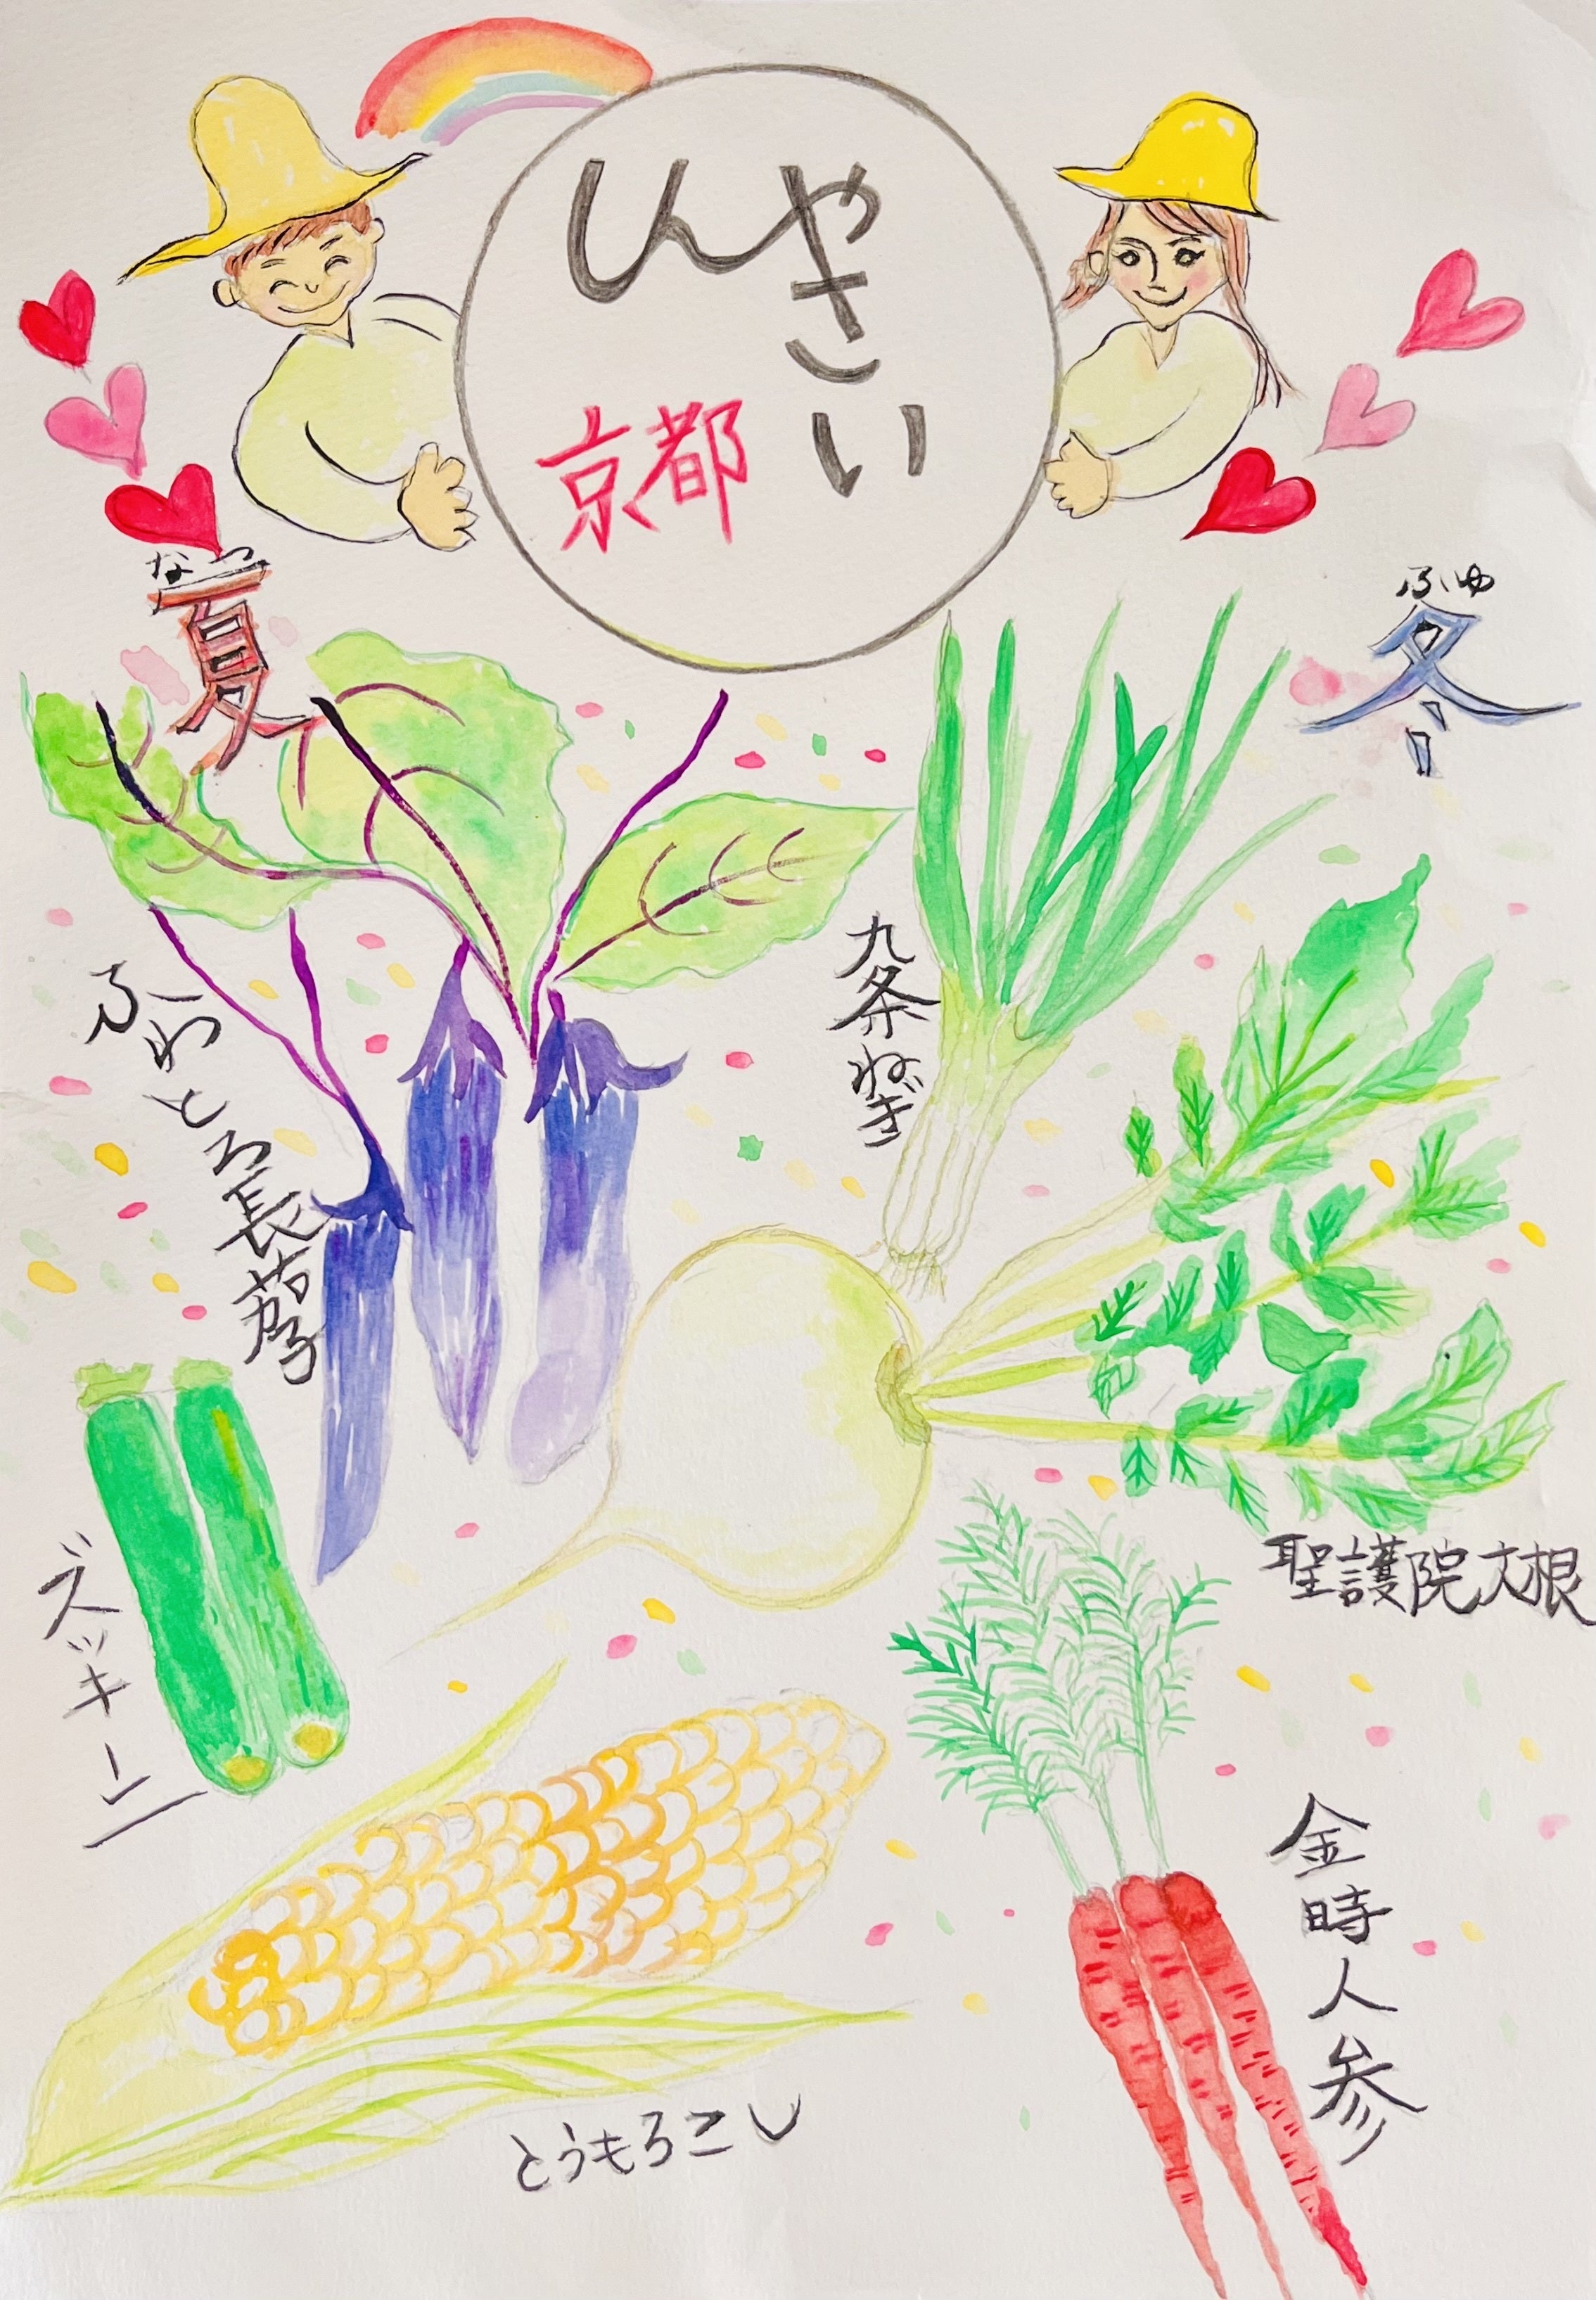 やさい
京都
なつ
夏
ふゆ
冬
ふわとろ長茄子
九条ねぎ
ズッキーニ
聖護院大根
とうもろこし
金時人参